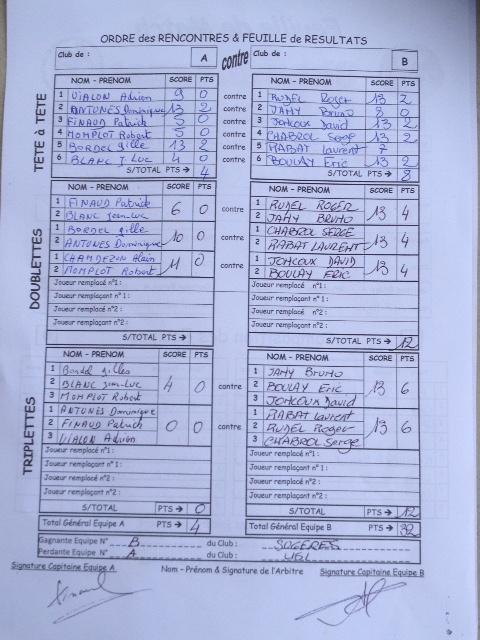 ORDRE des RENCONTRES & FEUILLE de RESULTATS
Club de : A contre Club de : B
TETE à TETE
NOM - PRENOM SCORE PTS NOM - PRENOM SCORE PTS
1 VIALON Adrien 9 0 contre 1 RUDEL Roger 13 2
2 ANTUNES Dominique 13 2 contre 2 JAMY Bruno 8 0
3 FINAUD Patrick 5 0 contre 3 JOHCOUX David 13 2
4 MOMPLOT Robert 5 0 contre 4 CHABROL SERGE 13 2
5 BORDEL gille 13 2 contre 5 RABAT Laurent 7
6 BLANC J Luc 4 0 contre 6 BOULAY Eric 13 2
S/TOTAL PTS → 4 S/TOTAL PTS → 8
DOUBLETTES
NOM - PRENOM SCORE PTS NOM - PRENOM SCORE PTS
1 FINAUD Patrick 6 0 contre 1 RUDEL ROGER 13 4
2 BLANC Jean-Luc 2 JAMY BRUNO
1 BORDEL gille 10 0 contre 1 CHABROL SERGE 13 4
2 ANTUNES Dominique 2 RABAT LAURENT
1 CHAMDEZON Alain 11 0 contre 1 JOHCOUX DAVID 13 4
2 MOMPLOT Robert 2 BOULAY ERIC
Joueur remplacé n°1 : Joueur remplacé n°1 :
Joueur remplaçant n°1 : Joueur remplaçant n°1 :
Joueur remplacé n°2 : Joueur remplacé n°2 :
Joueur remplaçant n°2 : Joueur remplaçant n°2 :
S/TOTAL PTS → S/TOTAL PTS → 12
TRIPLETTES
NOM - PRENOM SCORE PTS NOM - PRENOM SCORE PTS
1 Bordel gilles 1 JAMY BRUNO
2 BLANC jean-Luc 4 0 contre 2 BOULAY ERIC 13 6
3 MOMPLOT Robert 3 JOHCOUX David
1 ANTUNÈS Dominique 1 RABAT Laurent
2 FINAUD Patrick 0 0 contre 2 RUDEL Roger 13 6
3 VIALON Adrien 3 CHABROL Serge
Joueur remplacé n°1 : Joueur remplacé n°1 :
Joueur remplaçant n°1 : Joueur remplaçant n°1 :
Joueur remplacé n°2 : Joueur remplacé n°2 :
Joueur remplaçant n°2 : Joueur remplaçant n°2 :
S/TOTAL PTS → 0 S/TOTAL PTS → 12
Total Général Equipe A PTS → 4 Total Général Equipe B PTS → 32
Gagnante Equipe N° B du Club : SUGERES
Perdante Equipe N° A du Club :
Signature Capitaine Equipe A Nom - Prénom & Signature de l'Arbitre Signature Capitaine Equipe B